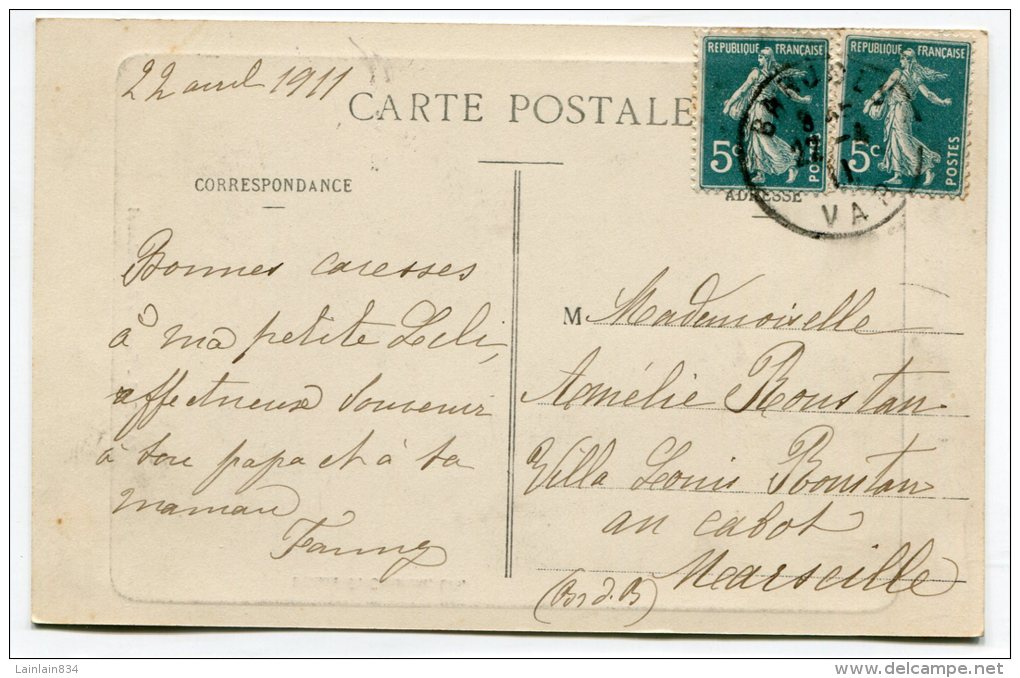 22 avril 1911
CARTE POSTALE
CORRESPONDANCE
ADRESSE
REPUBLIQUE FRANÇAISE
5c
POSTES
REPUBLIQUE FRANÇAISE
5c
POSTES
22 -4
11
VAR
Bonnes caresses
à ma petite Lili,
affectueux souvenir
à ton papa et à ta
maman
Fanny
M Mademoiselle
Amélie Roustan
Villa Louis Roustan
au cabot
Marseille
(Bs d. R)
Lainlain834
delcampe.net